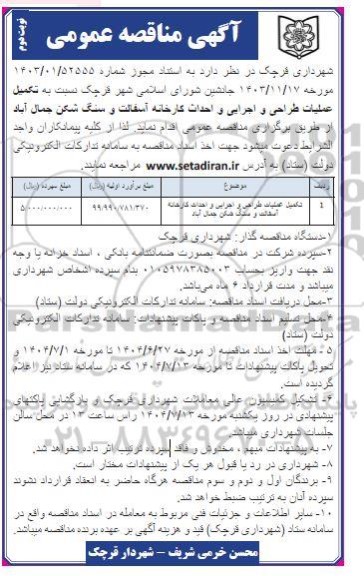 آگهی مناقصه عمومی
نوبت دوم
شهرداری قرچک در نظر دارد به استناد مجوز شماره ۱۴۰۳/۰۱/۵۲۵۵۵
مورخه ۱۴۰۳/۱۱/۱۷ جانشین شورای اسلامی شهر قرچک نسبت به تکمیل
عملیات طراحی و اجرایی و احداث کارخانه آسفالت و سنگ شکن جمال آباد
از طریق برگزاری مناقصه عمومی اقدام نماید. لذا از کلیه پیمانکاران واجد
الشرایط دعوت میشود جهت اخذ اسناد مناقصه به سامانه تدارکات الکترونیکی
دولت (ستاد) به آدرس www.setadiran.ir مراجعه نمایند.
ردیف موضوع مبلغ برآورد اولیه (ریال) مبلغ سپرده (ریال)
۱ تکمیل عملیات طراحی و اجرایی و احداث کارخانه آسفالت و سنگ شکن جمال آباد
۱-دستگاه مناقصه گذار: شهرداری قرچک
۲-سپرده شرکت در مناقصه بصورت ضمانتنامه بانکی ، اسناد خزانه یا وجه
نقد جهت واریز بحساب ۰۱۰۵۹۷۸۳۸۵۰۰۳ بنام سپرده اشخاص شهرداری
میباشد و مدت قرارداد ۶ ماه می‌باشد.
۳-محل دریافت اسناد مناقصه: سامانه تدارکات الکترونیکی دولت (ستاد)
۴-محل تسلیم اسناد مناقصه و پاکات پیشنهادات: سامانه تدارکات الکترونیکی
دولت (ستاد)
۵- مهلت اخذ اسناد مناقصه از مورخه ۱۴۰۴/۶/۲۷ تا مورخه ۱۴۰۴/۷/۱ و
تحویل پاکات پیشنهادات تا مورخه ۱۴۰۴/۷/۱۳ که در سامانه ستاد نیز اعلام
گردیده است.
۶- تشکیل کمیسیون عالی معاملات شهرداری قرچک و بازگشایی پاکتهای
پیشنهادی در روز یکشنبه مورخه ۱۴۰۴/۷/۱۳ راس ساعت ۱۳ در محل سالن
جلسات شهرداری میباشد.
۷- به پیشنهادات مبهم ، مخدوش و فاقد سپرده ترتیب اثر داده نخواهد شد.
۸- شهرداری در رد یا قبول هر یک از پیشنهادات مختار است.
۹- برندگان اول و دوم و سوم مناقصه هرگاه حاضر به انعقاد قرارداد نشوند
سپرده آنان به ترتیب ضبط خواهد شد.
۱۰- سایر اطلاعات و جزئیات فنی مربوط به معامله در اسناد مناقصه واقع در
سامانه ستاد (شهرداری قرچک) قید و هزینه آگهی بر عهده برنده مناقصه میباشد.
محسن خرمی شریف – شهردار قرچک